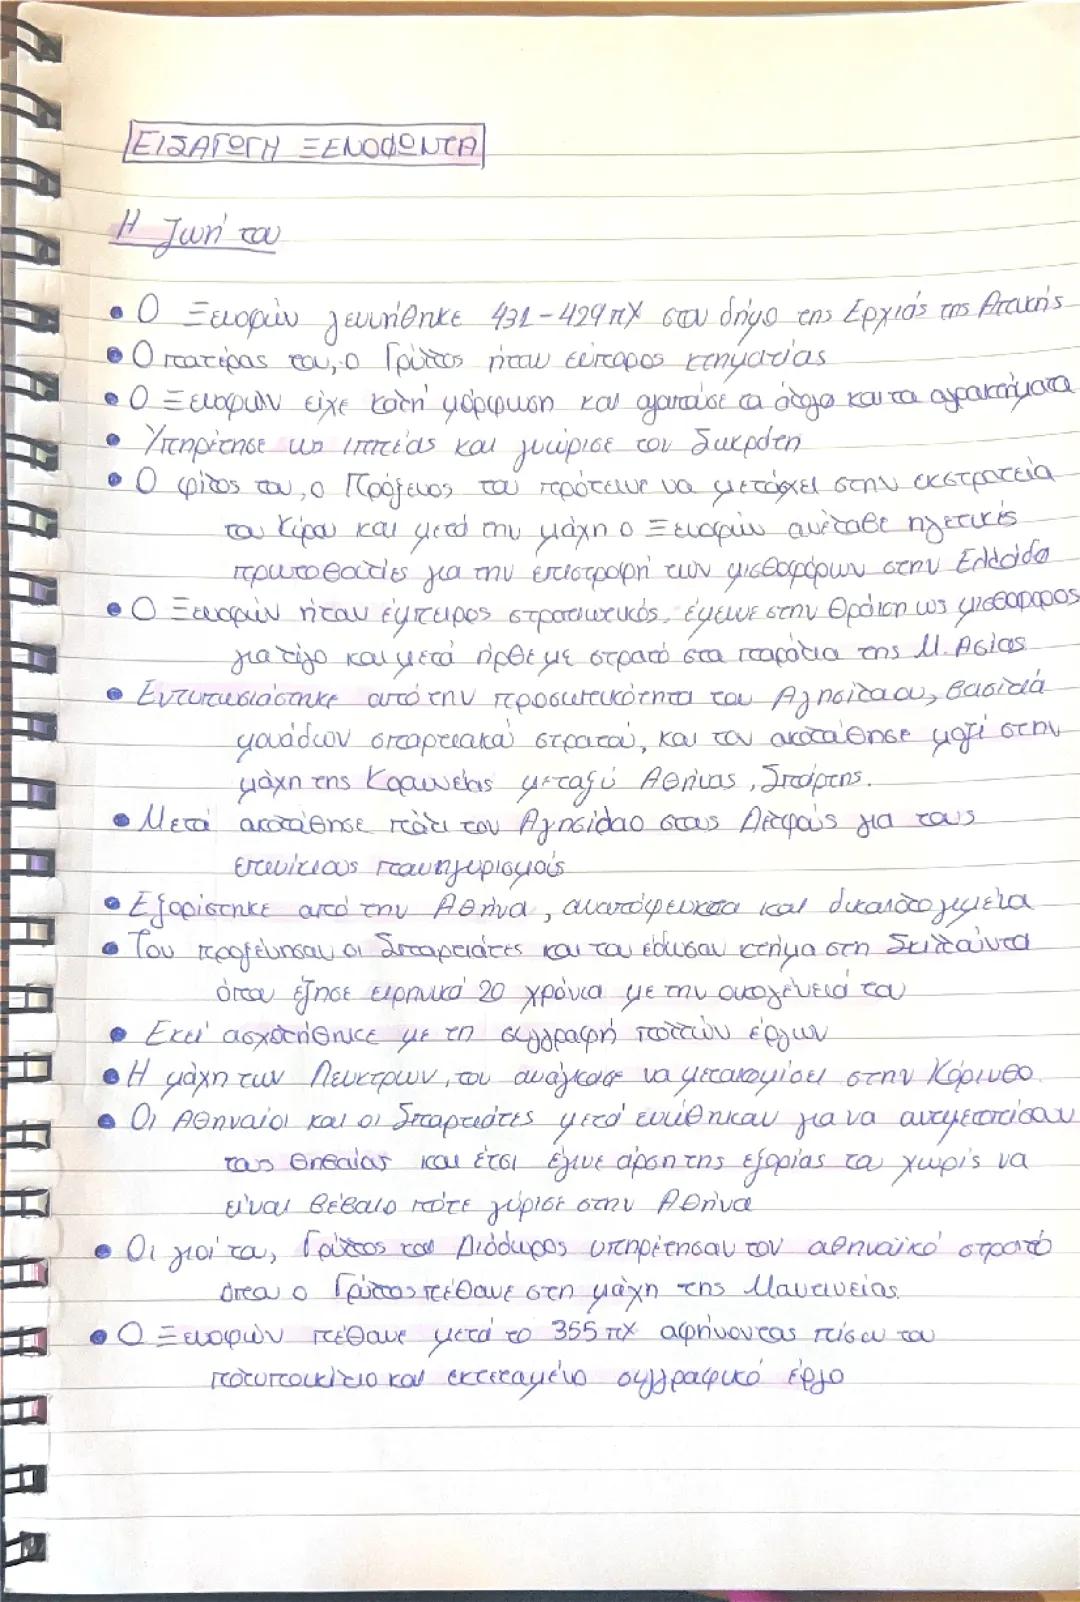 ΕΙΣΑΓΩΓΗ ΞΕΝΟΦΩΝΤΑ
Η ζωή του
• Ο Ξενοφών γεννήθηκε 431-429 πΧ στον δήμο της Ερχιάς της Αττικής
• Ο πατέρας του, ο Γρύλλος ήταν εύπορος κτηματίας
• Ο Ξενοφών είχε καλή μόρφωση και αγαπούσε τα άλογα και τα αγροκτήματα
• Υπηρέτησε ως ιππέας και γνώρισε τον Σωκράτη
• Ο φίλος του, ο Πρόξενος του πρότεινε να μετάσχει στην εκστρατεία
του Κύρου και μετά την μάχη ο Ξενοφών ανέλαβε ηγετικές
πρωτοβουλίες για την επιστροφή των μισθοφόρων στην Ελλάδα
• Ο Ξενοφών ήταν έμπειρος στρατιωτικός, έμεινε στην Θράκη ως μισθοφόρος
για λίγο και μετά ήρθε με στρατό στα παράλια της Μ. Ασίας
• Εντυπωσιάστηκε από την προσωπικότητα του Αγησιλάου, βασιλιά
μονάδων σπαρτιακού στρατού, και τον ακολούθησε μαζί στην
μάχη της Κορωνείας μεταξύ Αθήνας, Σπάρτης.
• Μετά ακολούθησε πάλι τον Αγησίλαο στους Δελφούς για τους
επινίκιους πανηγυρισμούς
• Εξορίστηκε από την Αθήνα, αναπόφευκτα και δικαιολογημένα
• Του προξένησαν οι Σπαρτιάτες και του έδωσαν κτήμα στη Σκιλλούντα
όπου έζησε ειρηνικά 20 χρόνια με την οικογένειά του
• Εκεί ασχολήθηκε με τη συγγραφή πολλών έργων
• Η μάχη των Λεύκτρων, τον ανάγκασε να μετακομίσει στην Κόρινθο.
• Οι Αθηναίοι και οι Σπαρτιάτες μετά ενώθηκαν για να αντιμετωπίσουν
τους Θηβαίους και έτσι έγινε άρση της εξορίας του χωρίς να
είναι βέβαιο πότε γύρισε στην Αθήνα
• Οι γιοί του, Γρύλλος και Διόδωρος υπηρέτησαν τον αθηναϊκό στρατό
όπου ο Γρύλλος πέθανε στη μάχη της Μαντινείας.
• Ο Ξενοφών πέθανε μετά το 355 πΧ αφήνοντας πίσω του
πολυποίκιλο και εκτεταμένο συγγραφικό έργο